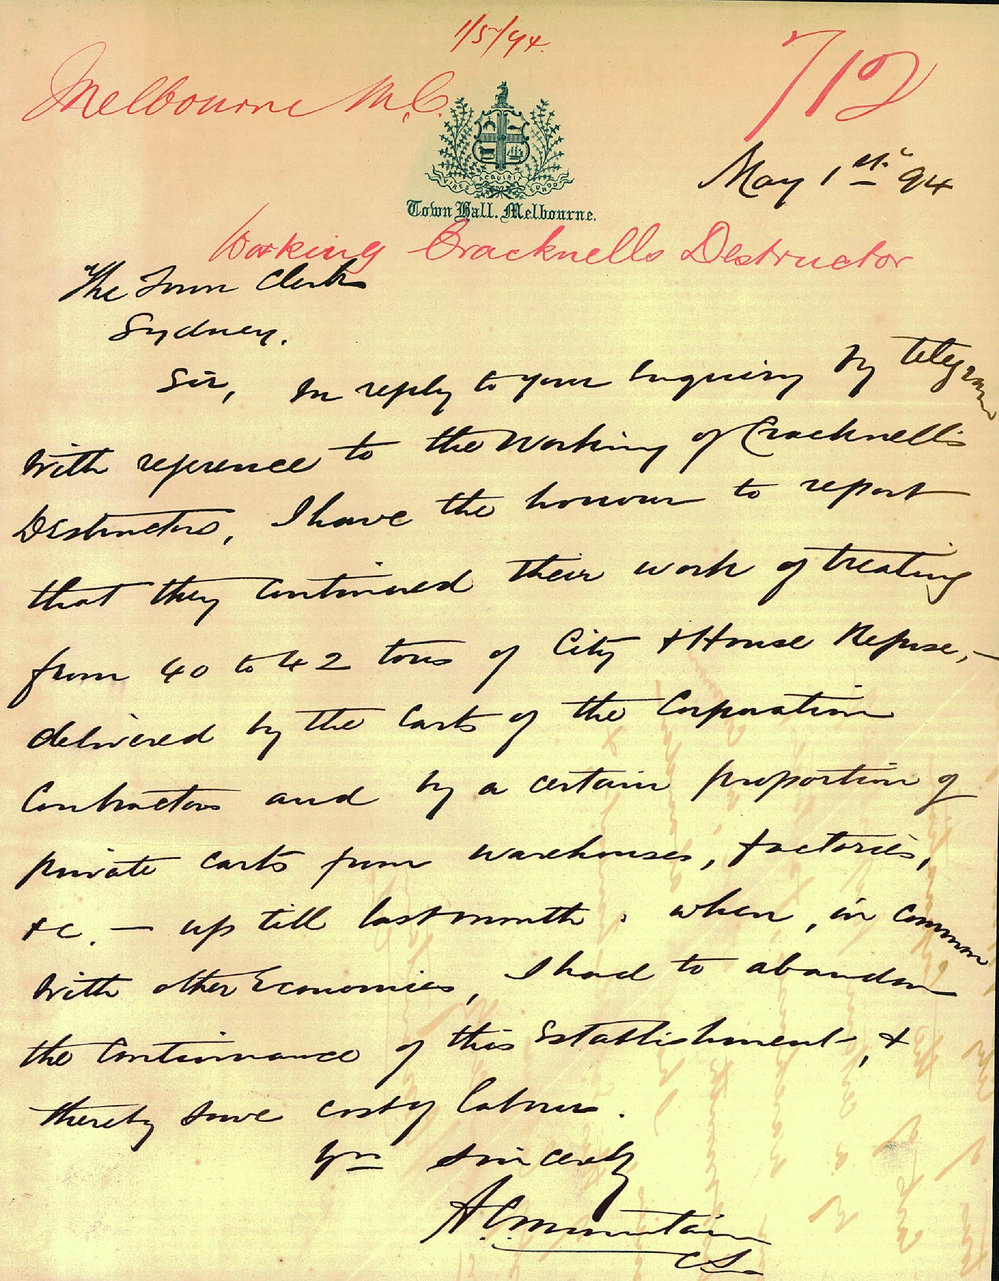 1/5/94.
Melbourne M.C.
712
Town Hall. Melbourne.
May 1st. 94
Working Cracknells Destructor
The Town Clerk
Sydney.
Sir, In reply to your Enquiry by telegram
with reference to the Working of Cracknell's
Destructors, I have the honour to report
that they continued their work of treating
from 40 to 42 tons of City & House Refuse, –
delivered by the Carts of the Corporation
Contractors and by a certain proportion of
private carts from warehouses, factories,
&c. – up till last month. when, in common
with other Economies, I had to abandon
the Continuance of this Establishment, &
thereby save cost of labour.
Yrs sincerely
A C Mountain
C.S.